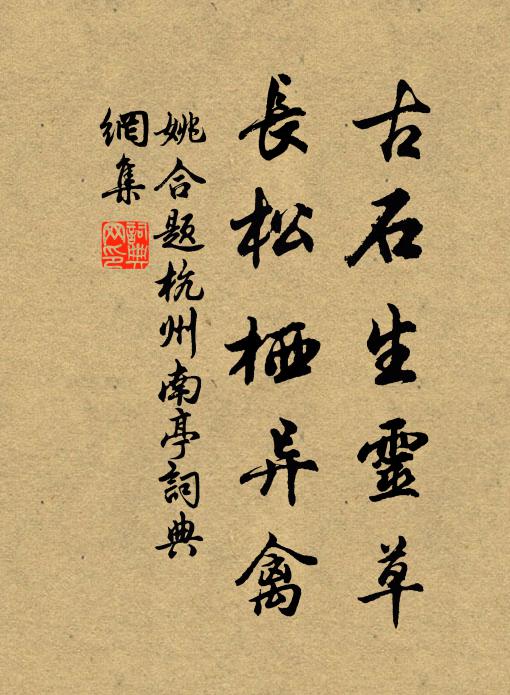 古石生靈草
長松栖异禽
姚合题杭州南亭詞典
網集
詞典
网印